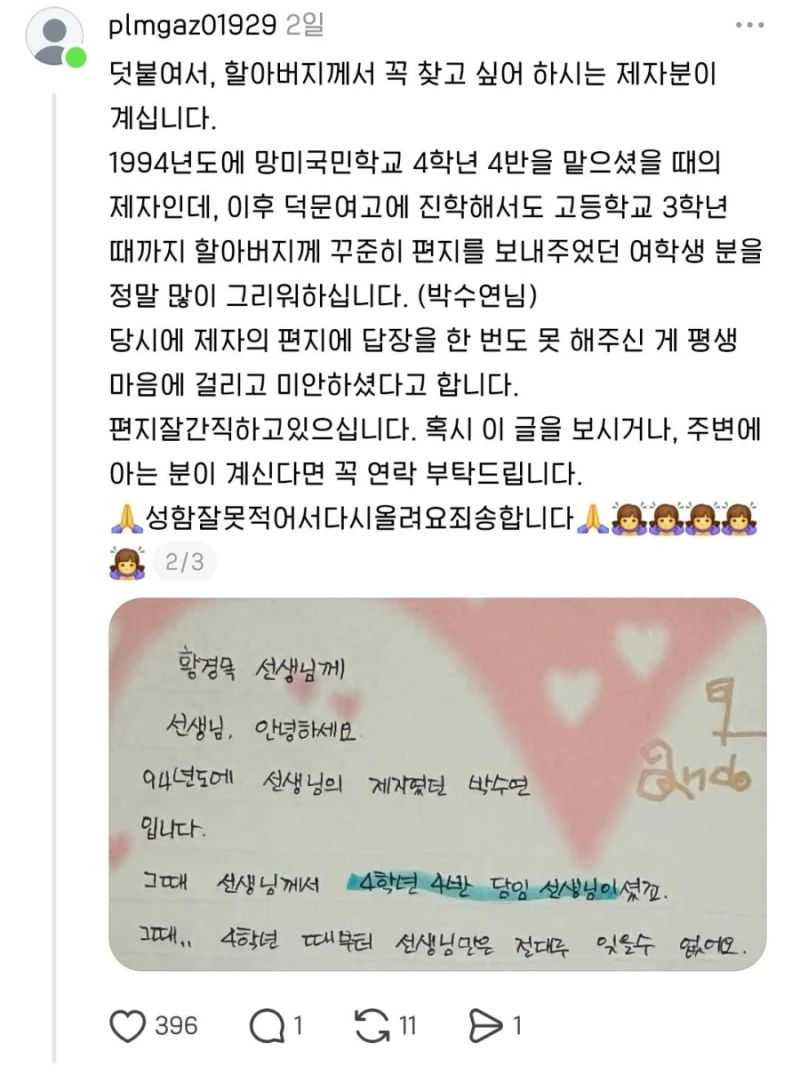 plmgaz01929 2일
덧붙여서, 할아버지께서 꼭 찾고 싶어 하시는 제자분이
계십니다.
1994년도에 망미국민학교 4학년 4반을 맡으셨을 때의
제자인데, 이후 덕문여고에 진학해서도 고등학교 3학년
때까지 할아버지께 꾸준히 편지를 보내주었던 여학생 분을
정말 많이 그리워하십니다. (박수연님)
당시에 제자의 편지에 답장을 한 번도 못 해주신 게 평생
마음에 걸리고 미안하셨다고 합니다.
편지잘간직하고있으십니다. 혹시 이 글을 보시거나, 주변에
아는 분이 계신다면 꼭 연락 부탁드립니다.
🙏성함잘못적어서다시올려요죄송합니다🙏🙇‍♀️🙇‍♀️🙇‍♀️🙇‍♀️
🙇‍♀️ 2/3
황경목 선생님께
선생님, 안녕하세요.
94년도에 선생님의 제자였던 박수연
입니다.
그때 선생님께서 4학년 4반 담임 선생님이셨꼬.
그때,, 4학년 때부터 선생님만은 절대루 잊을수 없어요.
396 1 11 1